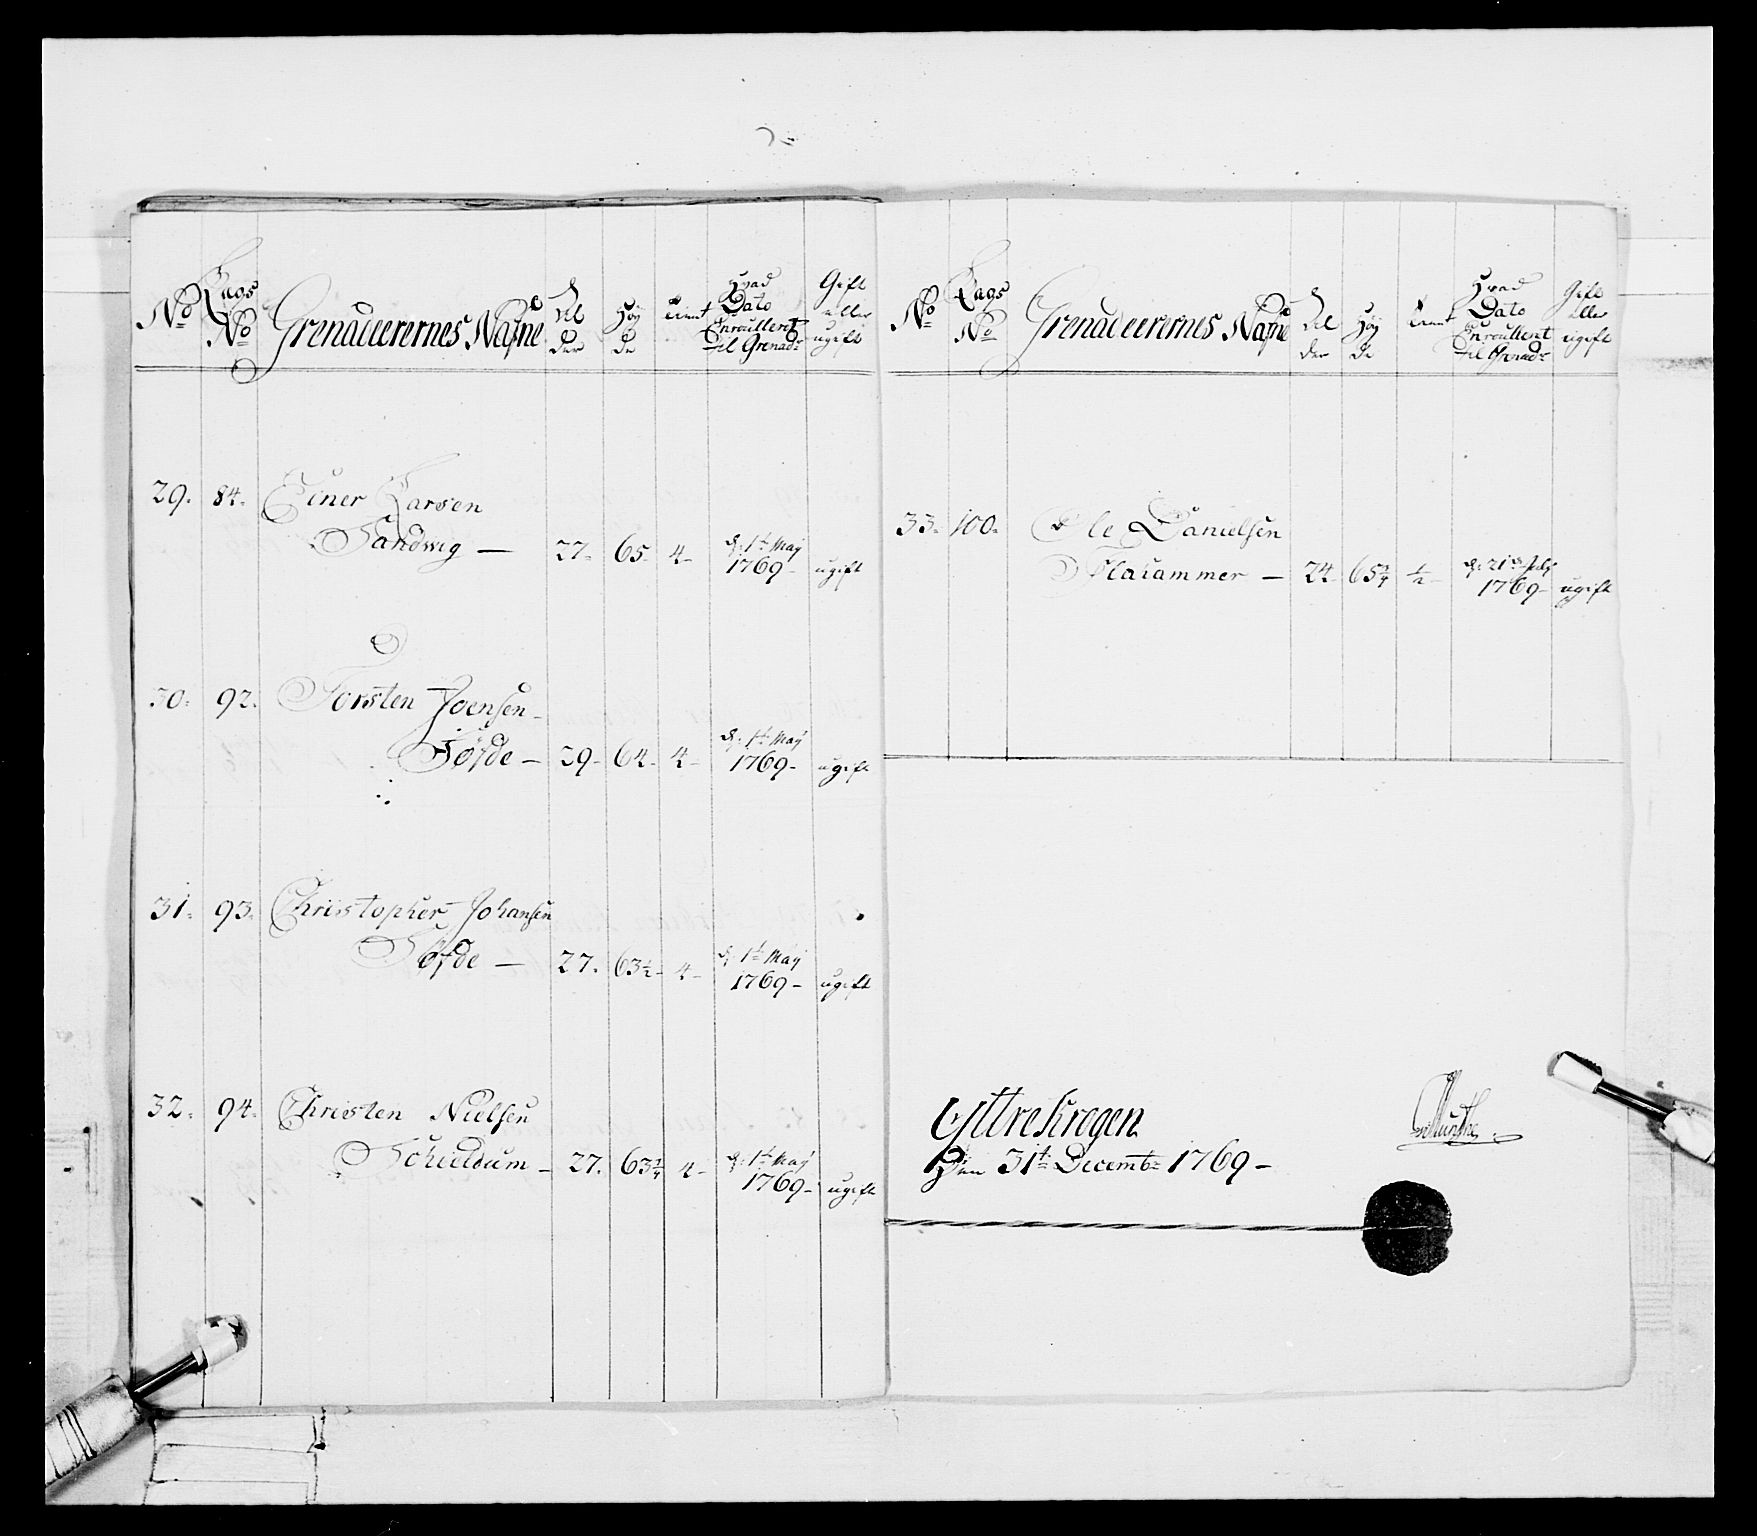 No
Lags
No
Grenadeerernes Nafne
Al
der
Høy
de
tient
Hvad
Dato
Enroulleret
til Grenadr
Gift
eller
ugift
29. 84. Einer Larsen
Sandwig — 27. 65. 4. d: 1t May
1769 – ugift
30. 92. Torsten Joensen
Søfde – 29. 64. 4. d: 1t May
1769 – ugift
31. 93. Christopher Johansen
Søfde – 27. 63½ 4. d: 1t May
1769 – ugift
32. 94. Christen Nielsen
Schieldum – 27. 63¼ 4. d: 1t May
1769 – ugift
No
Lags
No
Grenadeerernes Nafne
Al
der
Høy
de
tient
Hvad
Dato
Enroullert
til Grenadr
Gift
eller
ugift
33. 100. Ole Danielsen
Flahammer – 24 65¾ ½ d: 21st July
1769 – ugift
Yttre Krogen
Den 31t Decembr 1769 –
Munthe